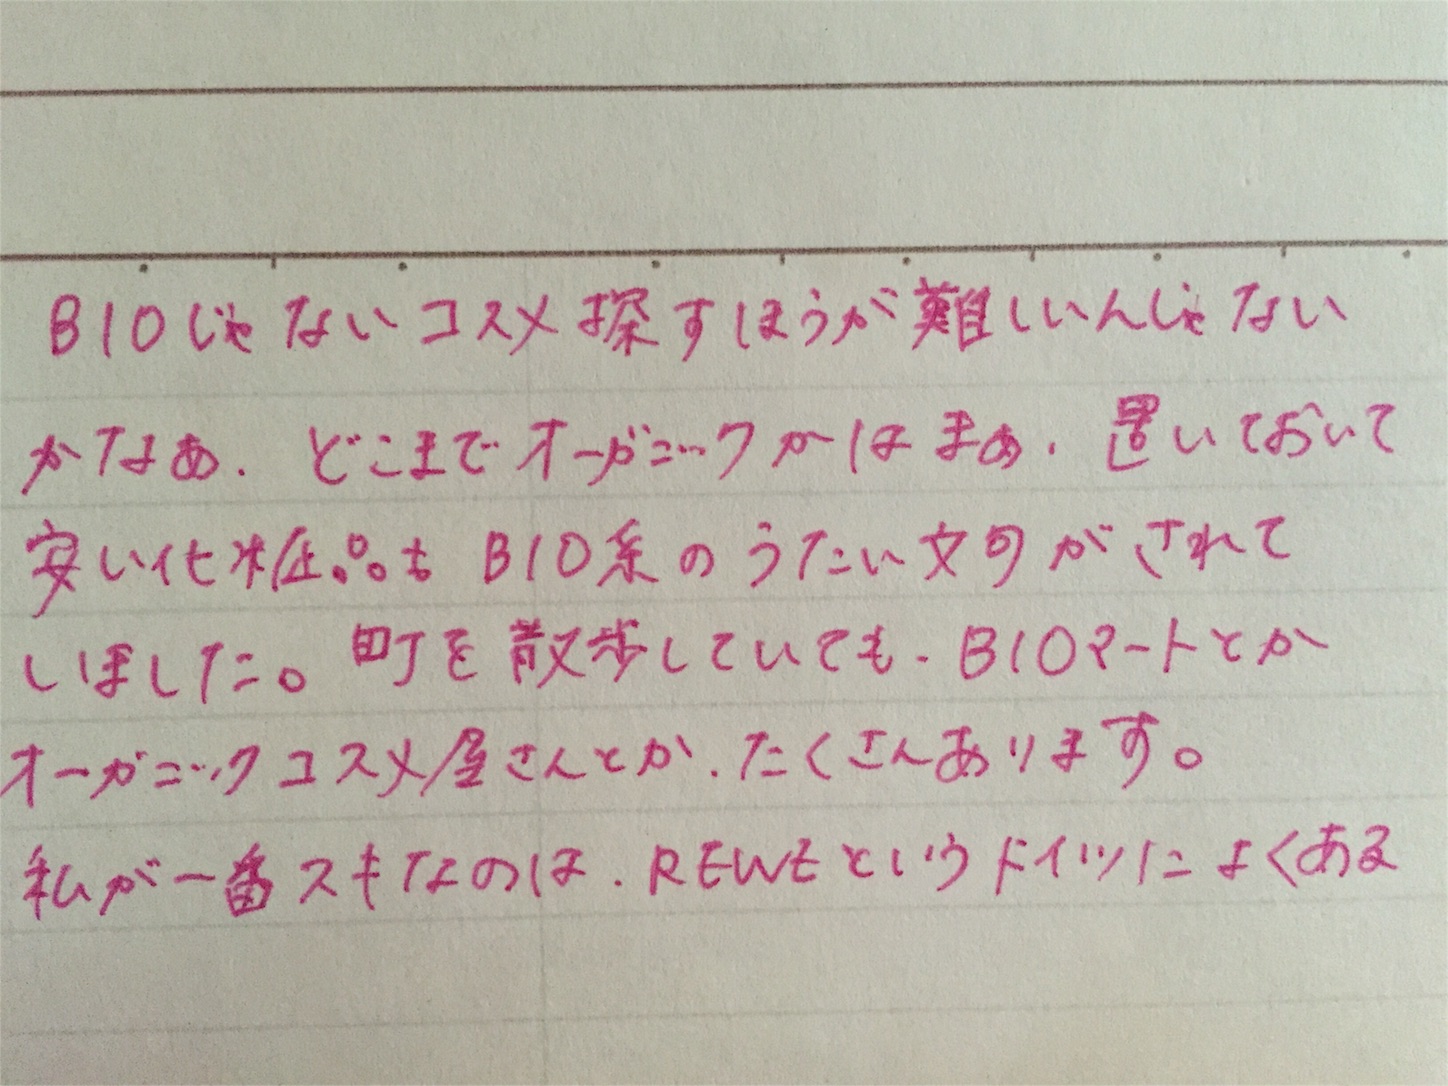 BIOじゃないコスメ探すほうが難しいんじゃない
かなぁ. どこまでオーガニックかはまぁ. 置いておいて
安い化粧品も BIO系のうたい文句がされて
しました。町を散歩していても. BIOマートとか
オーガニックコスメ屋さんとか. たくさんあります。
私が一番スキなのは. REWEというドイツによくある